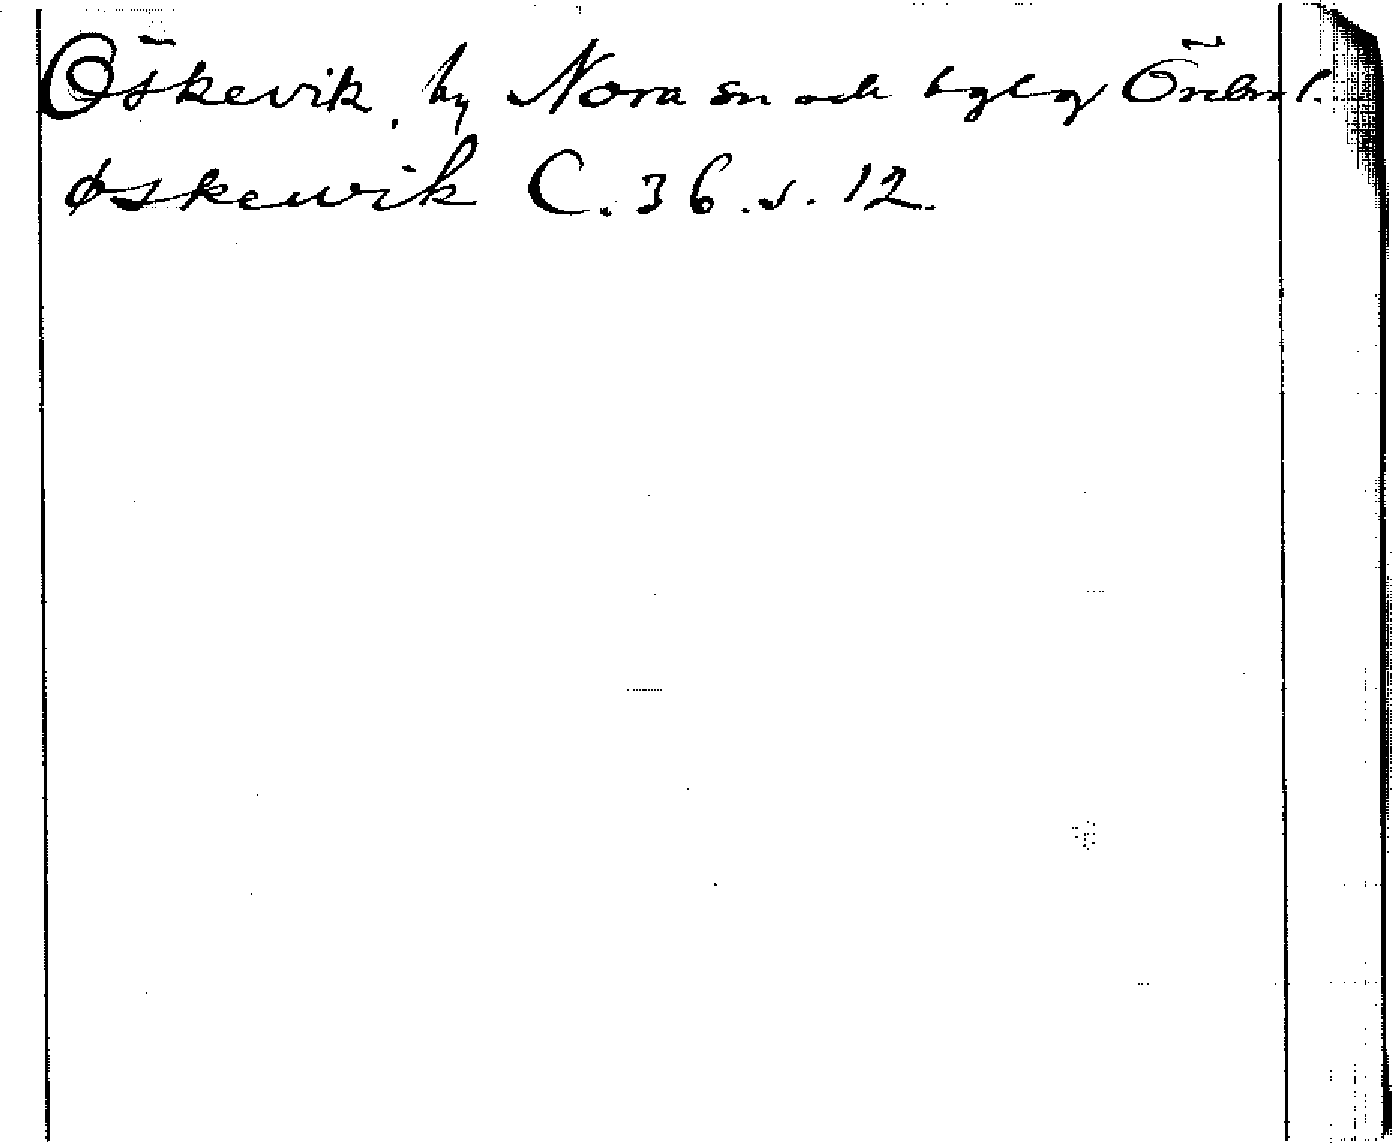 Öskevik, by Nora sn och bglg Örebro l.
Øskewik C. 36 s. 12.